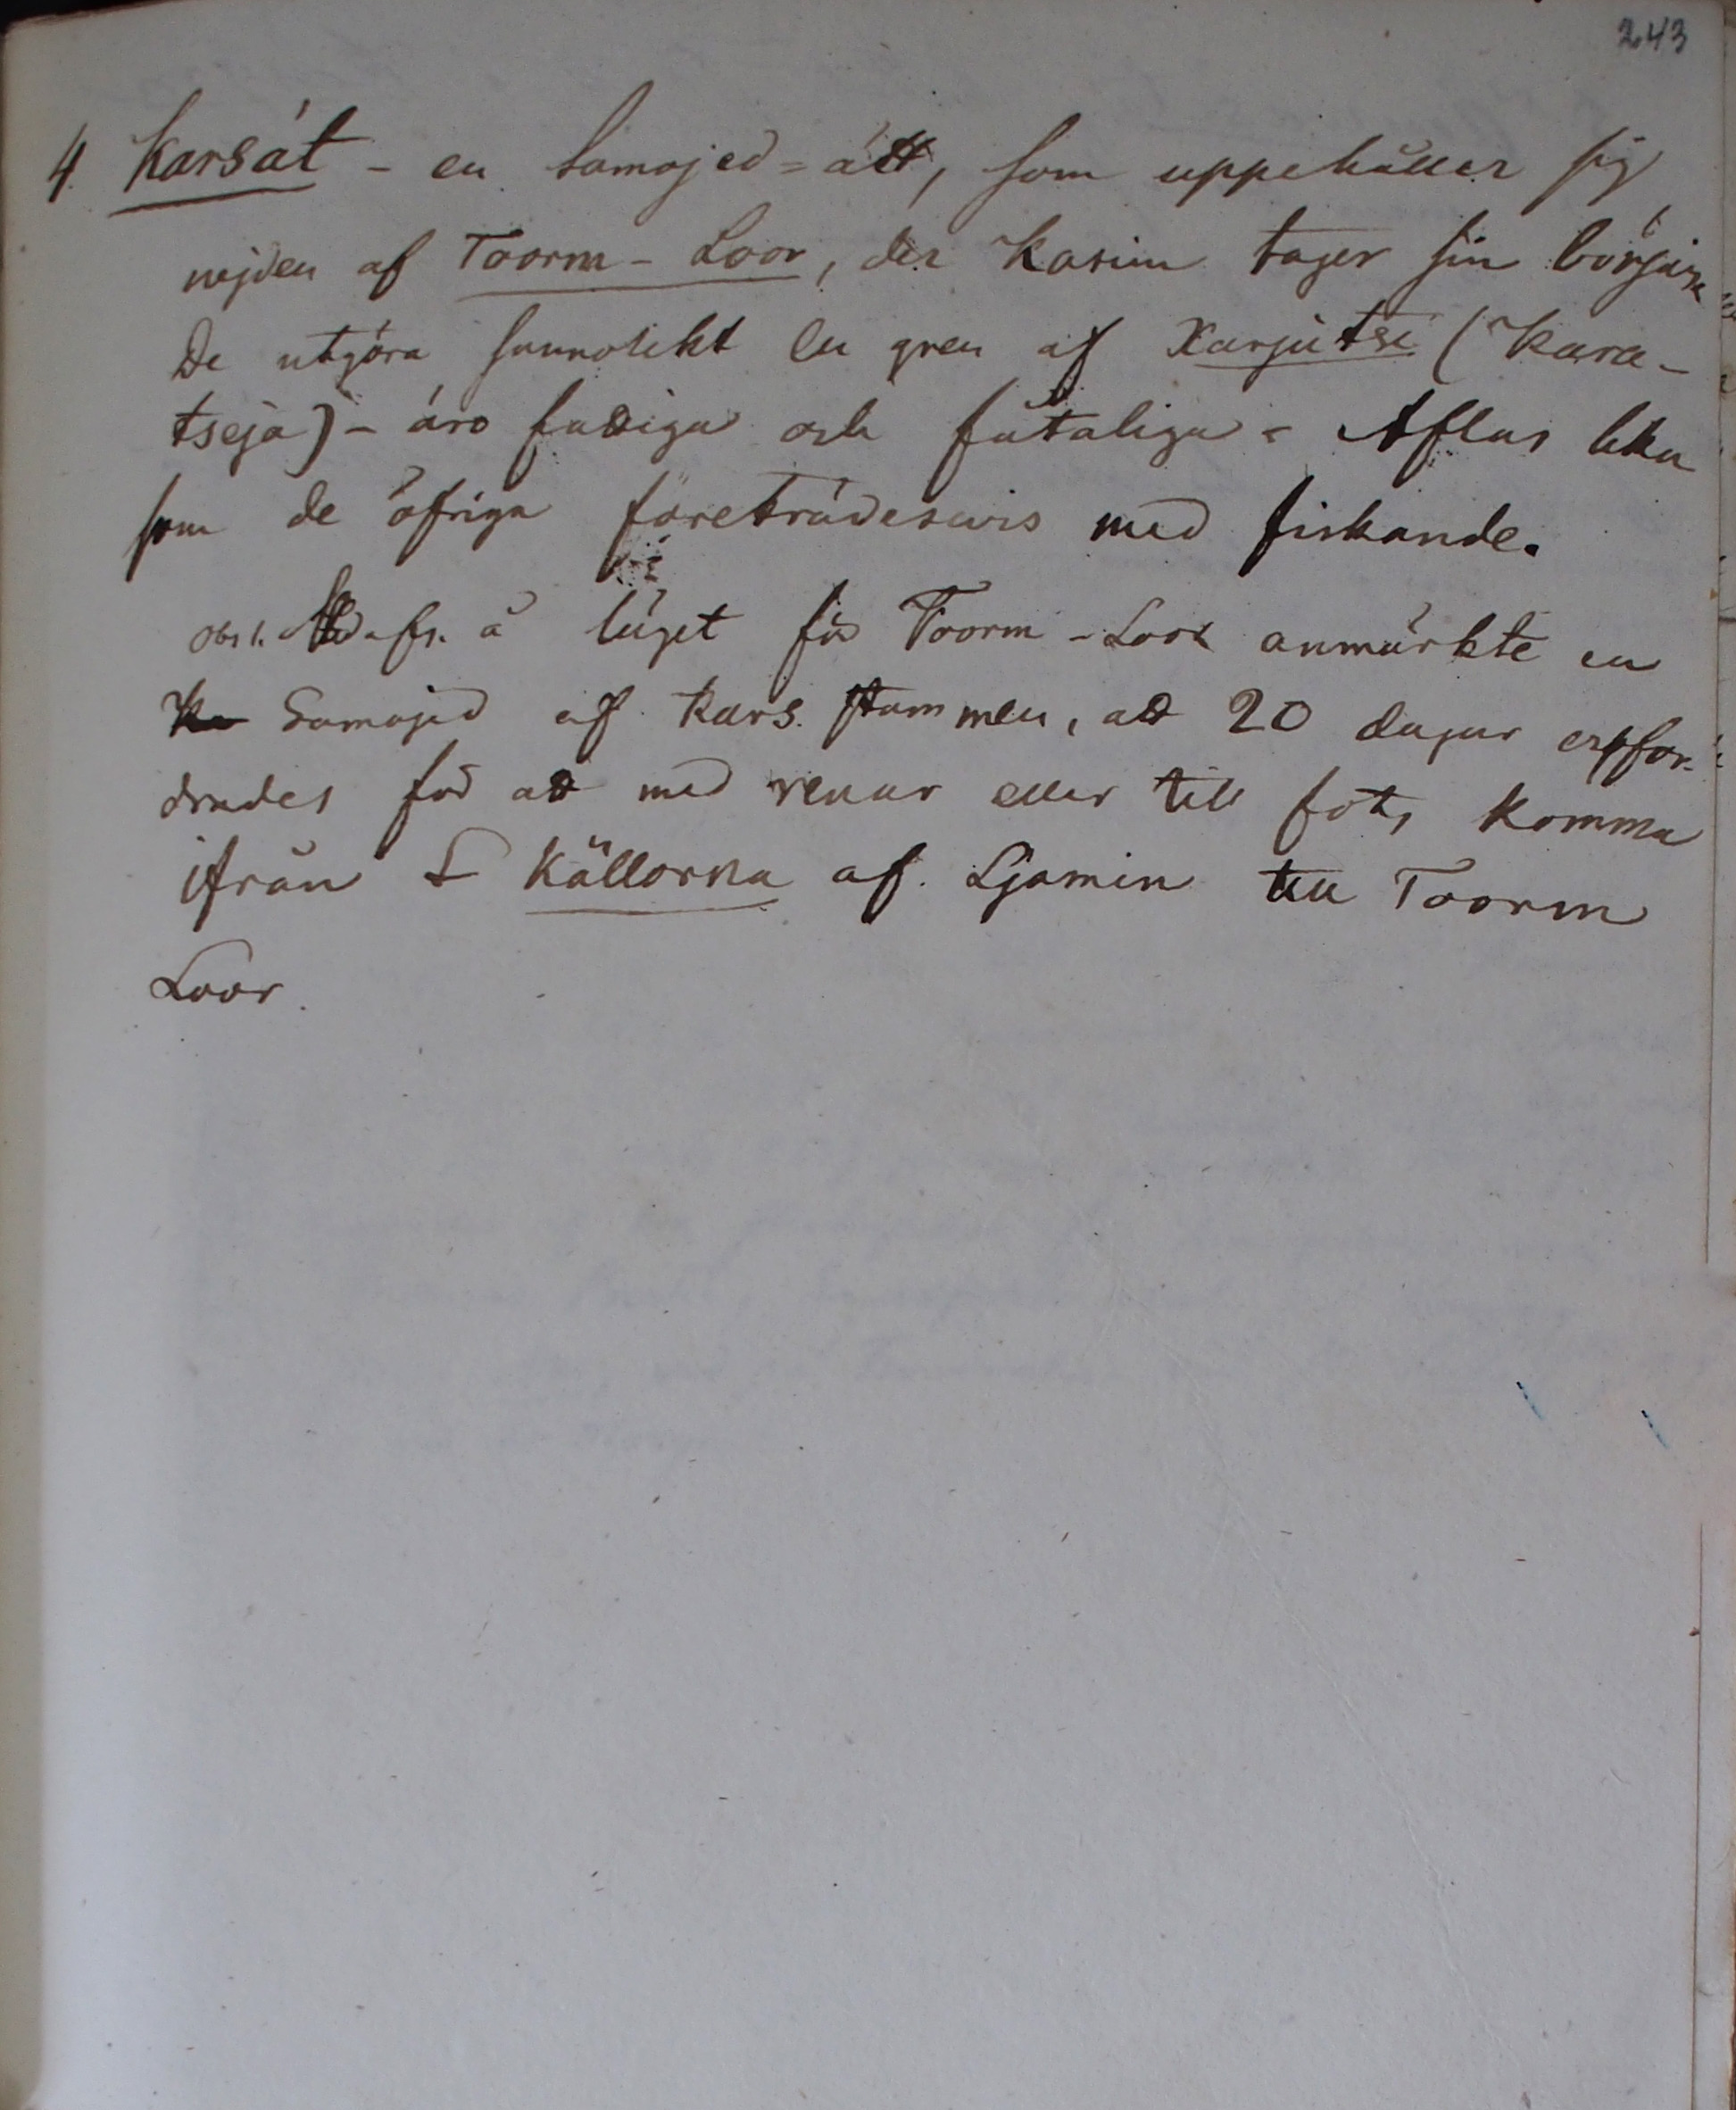 243
4. Karsát - en Samojed=ätt, som uppehåller sig
nejden af Toorm-Loor, der Kasim tager sin början
De utgöra sannolikt en gren af Karjutsi (Kara-
tseja) - äro fattiga och fåtaliga - Aflas lika
som de öfriga företrädesvis med fiskande.
Obs 1. afs. å läget för Toorm-Loor anmärkte en
Samojed af Kars. stammen, att 20 dagar erfor-
drades för att med renar eller till fots komma
ifrån Källorna af Ljamin till Toorm
Loor.